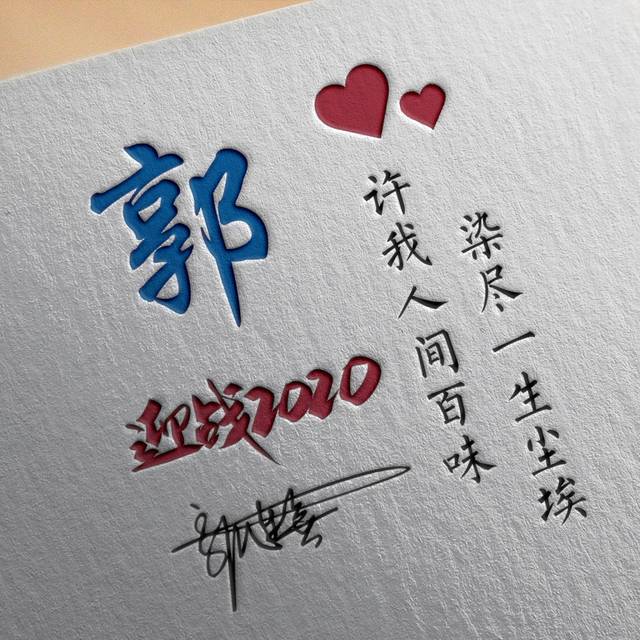 郭
迎战2020
许我人间百味
染尽一生尘埃